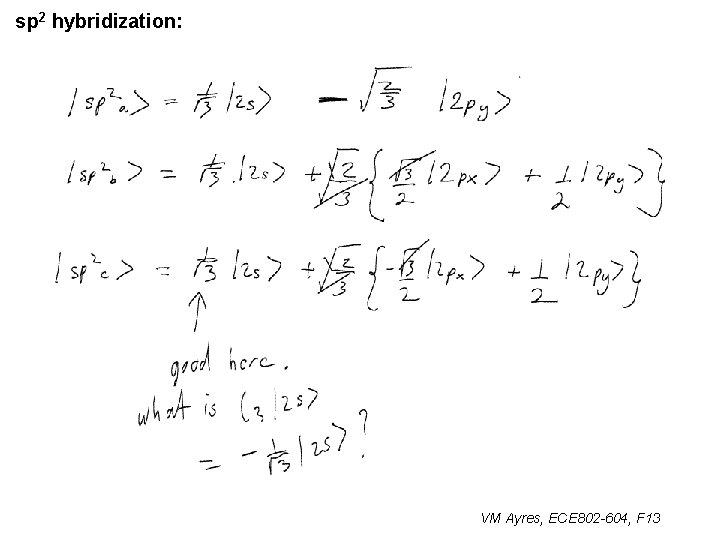 sp² hybridization:
|sp²a> = 1/√3 |2s> - √(2/3) |2py>
|sp²b> = 1/√3 |2s> + √(2/3) { √3/2 |2px> + 1/2 |2py> }
|sp²c> = 1/√3 |2s> + √(2/3) { -√3/2 |2px> + 1/2 |2py> }
↑
good here.
what is C₃|2s>
= - 1/√3 |2s> ?
VM Ayres, ECE802-604, F13